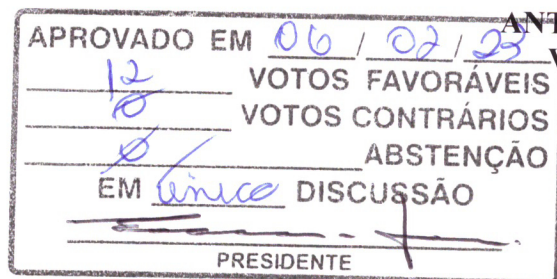 ANT
APROVADO EM 06 / 02 / 23
V
12 VOTOS FAVORÁVEIS
0 VOTOS CONTRÁRIOS
0 ABSTENÇÃO
EM única DISCUSSÃO
PRESIDENTE